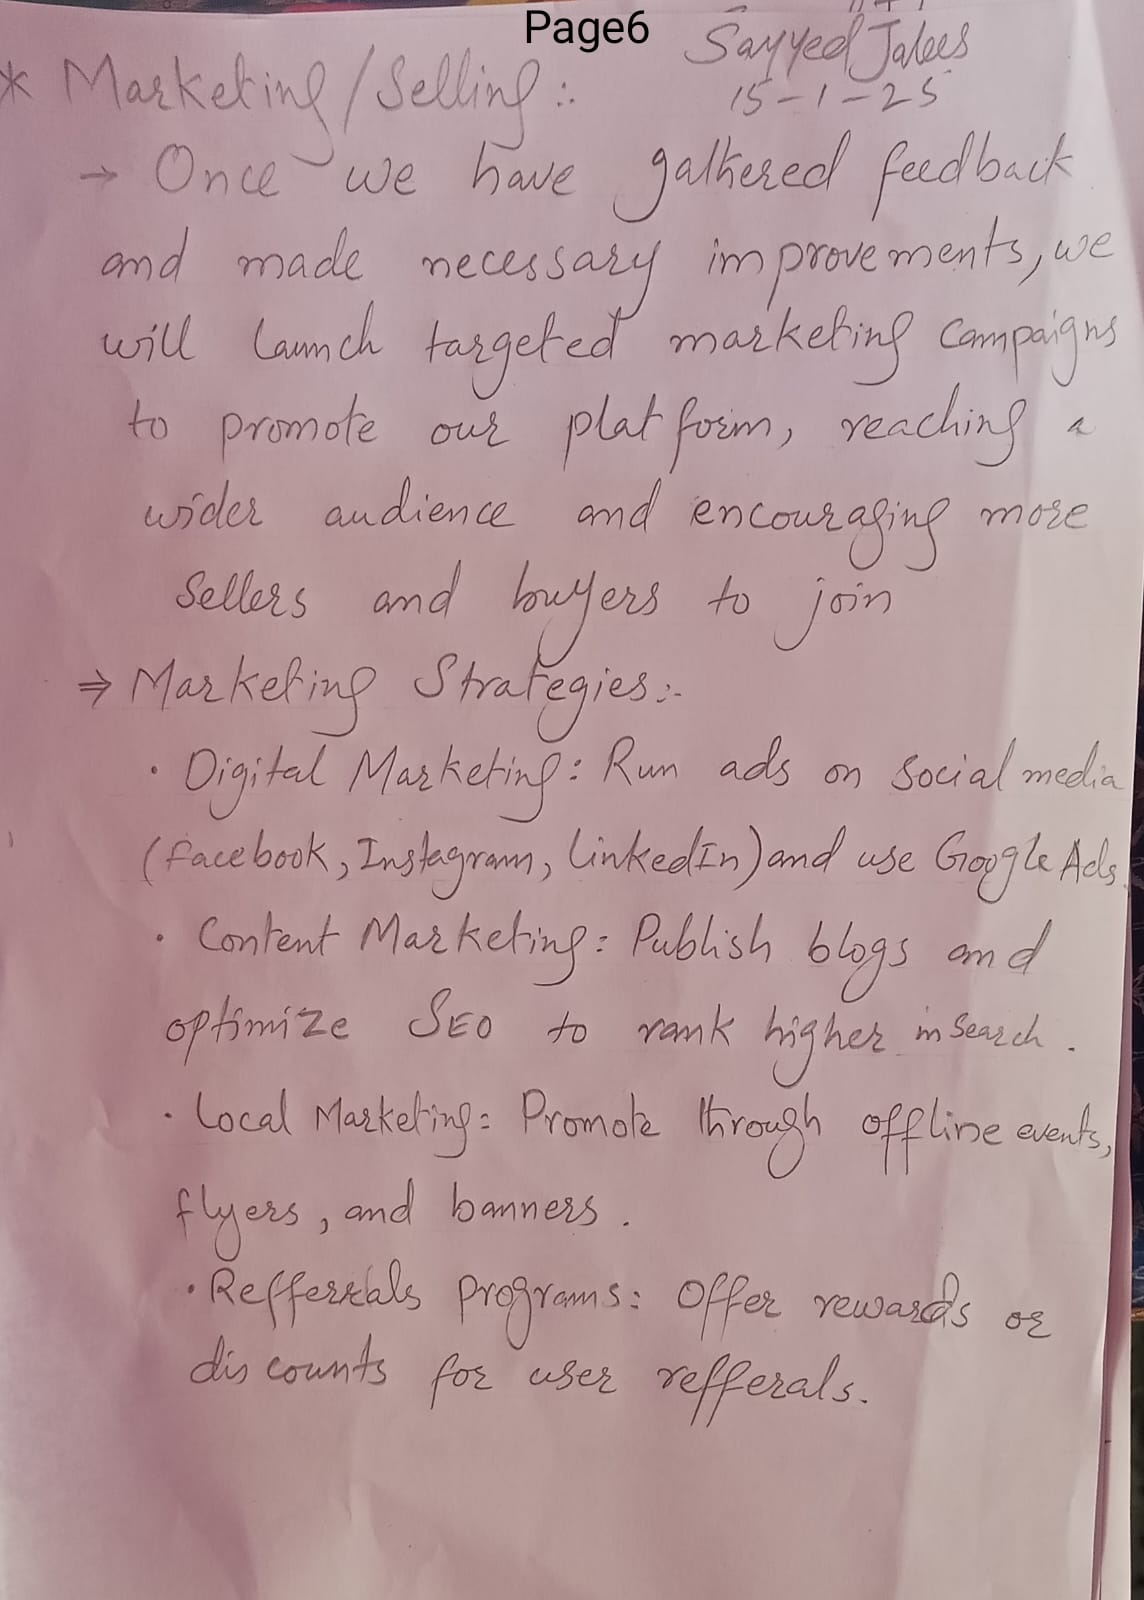 Page6
Sayyed Jalees
15-1-25
* Marketing/Selling:-
→ Once we have gathered feedback
and made necessary improvements, we
will launch targeted marketing campaigns
to promote our platform, reaching a
wider audience and encouraging more
Sellers and buyers to join
⇒ Marketing Strategies:-
• Digital Marketing: Run ads on social media
(facebook, Instagram, LinkedIn) and use Google Ads.
• Content Marketing: Publish blogs and
optimize SEO to rank higher in search.
• Local Marketing: Promote through offline events,
flyers, and banners.
• Refferrals programs: Offer rewards or
discounts for user refferals.